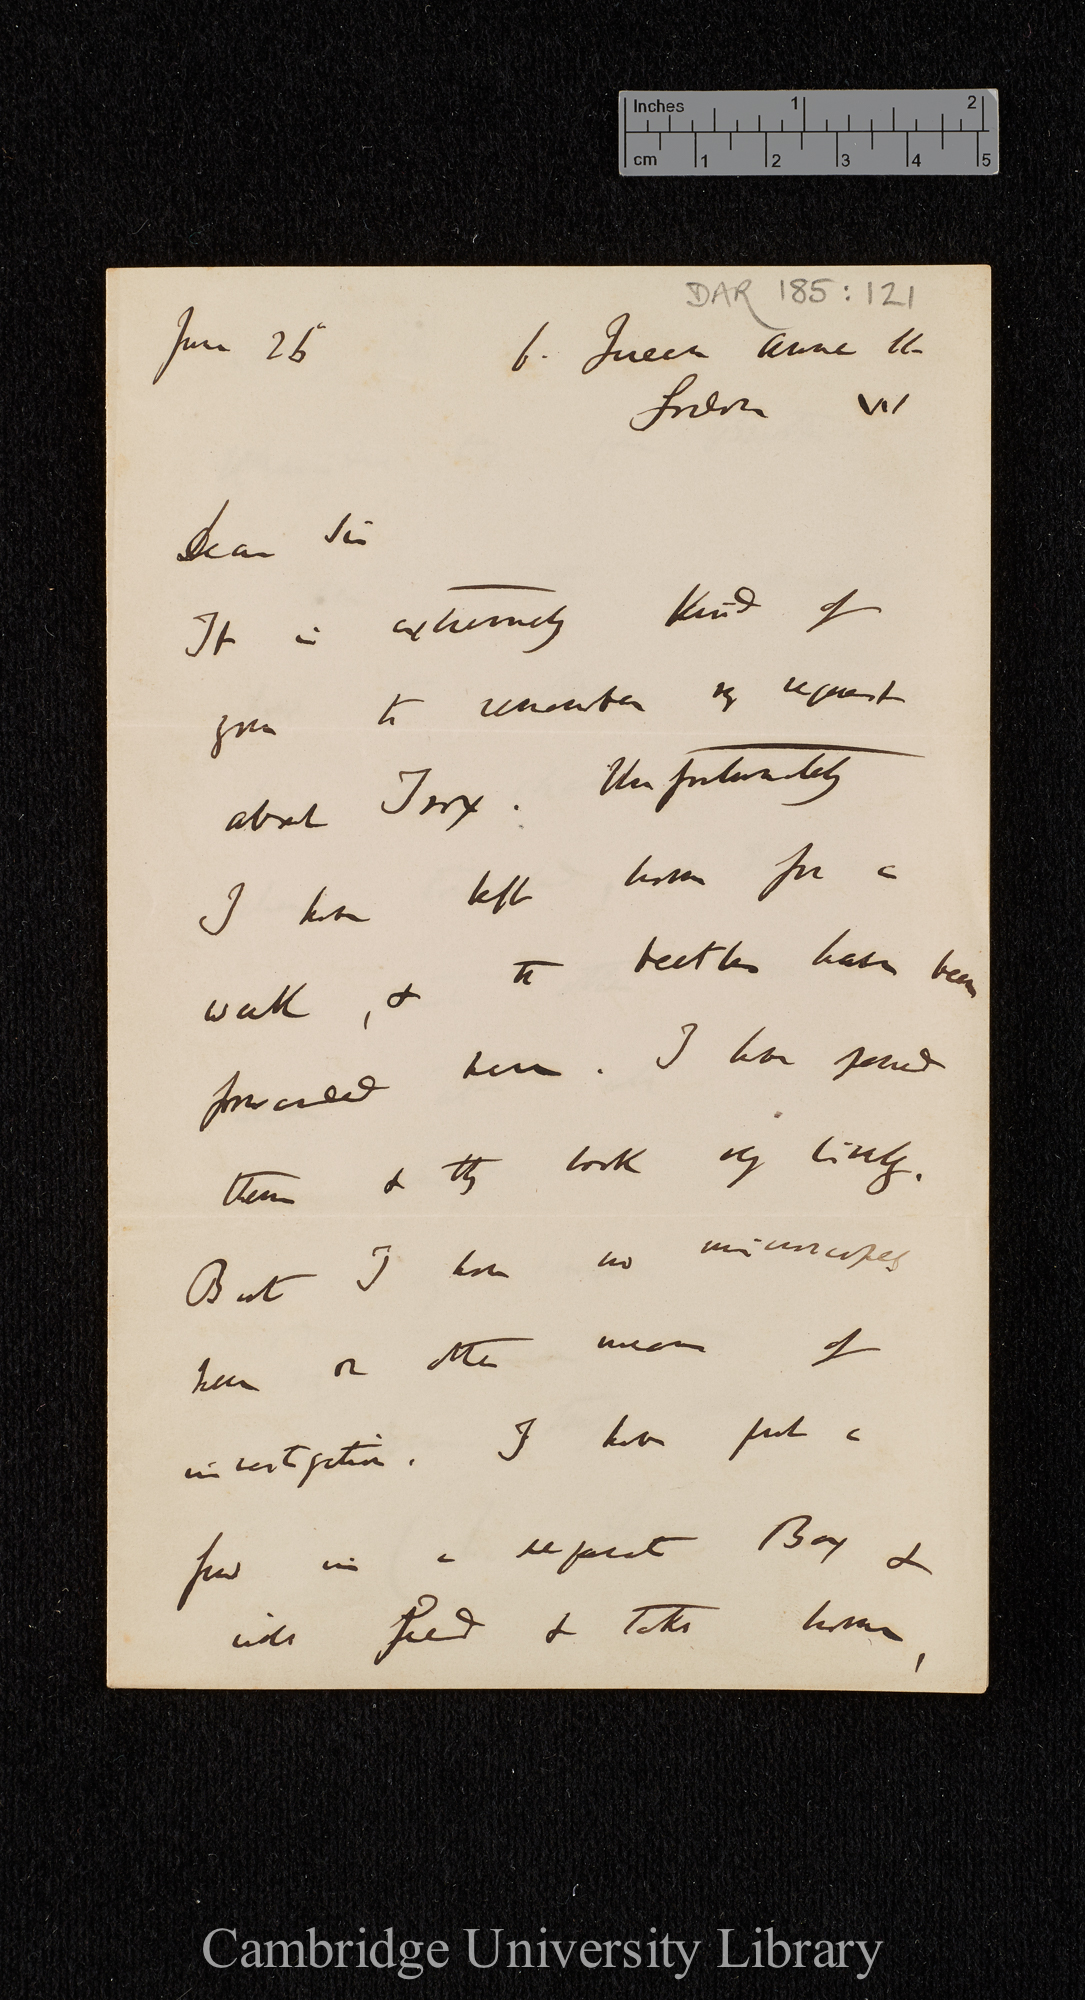 Inches 1 2
cm 1 2 3 4 5
DAR 185:121
June 25 6. Queen Anne St
London W
Dear Sir
It is extremely kind of
you to remember my request
about Trox. Unfortunately
I have left home for a
week, & the beetles have been
forwarded here. I have opened
them & they look very lively.
But I have no microscopes
here or other means of
investigation. I have put a
few in a separate Box &
will feed & take home,
Cambridge University Library